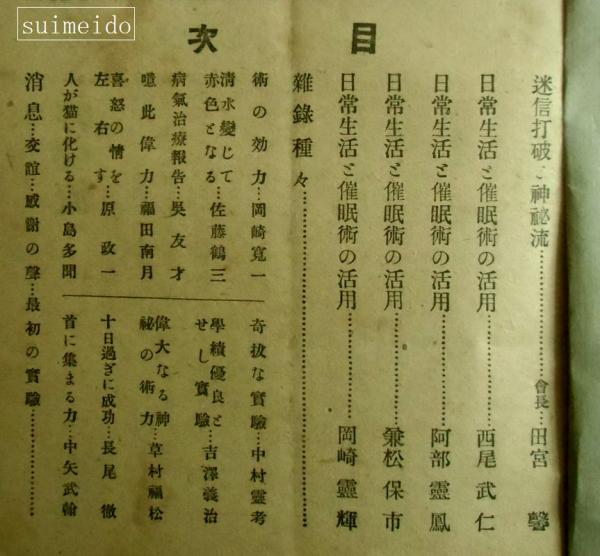 suimeido
目次
迷信打破と神祕流…………會長…田宮馨
日常生活と催眠術の活用…………西尾武仁
日常生活と催眠術の活用…………阿部靈鳳
日常生活と催眠術の活用…………兼松保市
日常生活と催眠術の活用…………岡崎靈輝
雜錄種々…………
術の効力…岡崎寛一
清水變じて赤色となる…佐藤鶴三
病氣治療報告…吳友才
噫此偉力…福田南月
喜怒の情を左右す…原政一
人が猫に化ける…小島多聞
奇拔な實驗…中村靈考
學績優良とせし實驗…吉澤義治
偉大なる神祕の術力…草村福松
十日過ぎに成功…長尾徹
首に集まる力…中矢武翰
消息…交誼…感謝の聲…最初の實驗…………